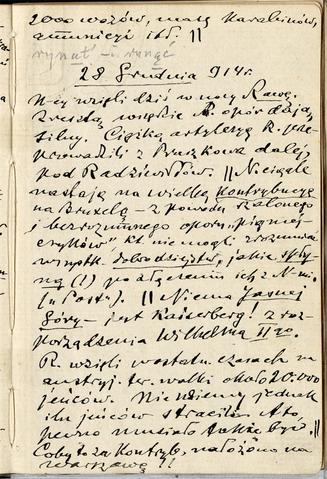 2000 wozów, masę karabinów,
amunicyi itd. ||
28 Grudnia 914 r.
N-cy wzięli dziś w nocy Rawę.
Zresztą wszędzie R. opór dają
silny. Ciężką artylerją R. prze
prowadzili z Pruszkowa dalej
pod Radziwiłłów. || N-cy ciągle
nastają na wielką kontrybucyę
na Brukselę – z powodu szalonego
i bezrozumnego oporu „pigmej-
czyków” kt. nie mogli zrozumieć
wszystk. dobrodziejstw, jakie spły
ną (!) po złączeniu ich z N-mi
(„Post”). || Niema Jasnej
Góry – jest Kaiserberg! z roz-
porządzenia Wilhelma II go.
R. wzięli w ostatn. czasach na
austryj. ter. walki około 20.000
jeńców. Nie wiemy jednak
ilu jeńców stracili. A to
pewno musiało także być. ||
Coby to za kontryb. nałożono na
Warszawę?!